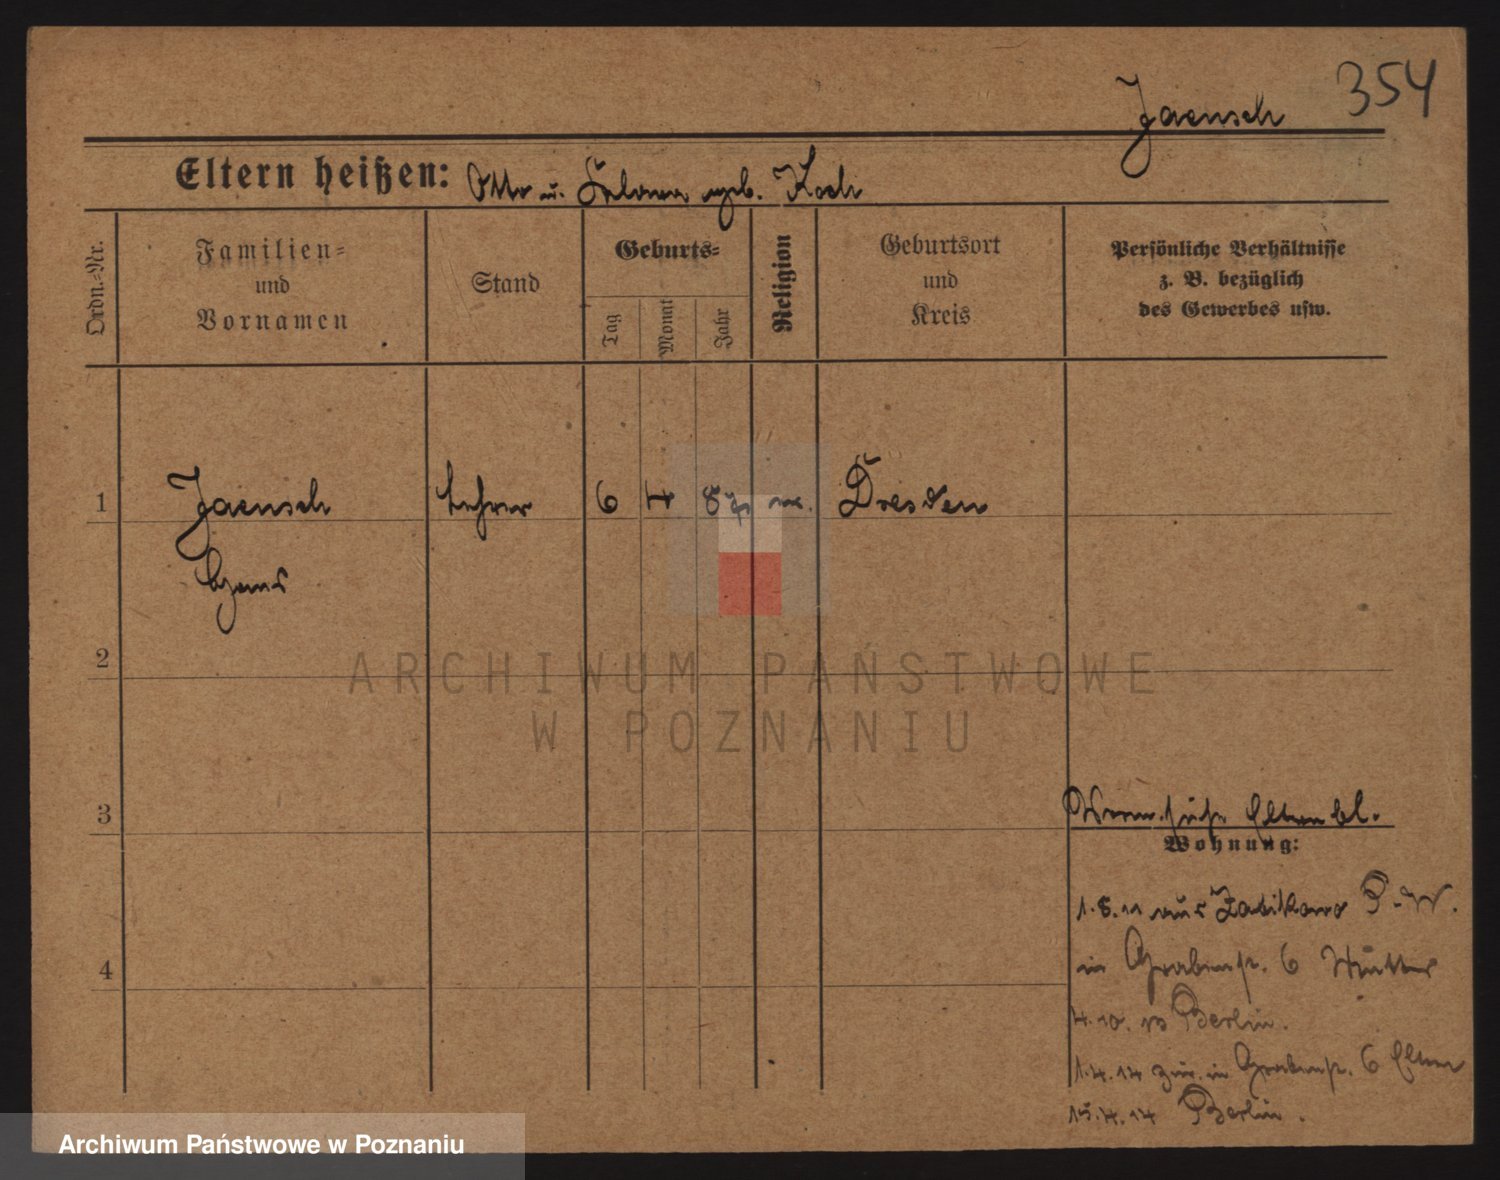 354
Jaensch
Eltern heißen: Otto u. geb. Koch
Ordn.-Nr.
Familien-
und
Vornamen
Stand
Geburts-
Tag
Monat
Jahr
Religion
Geburtsort
und
Kreis
Persönliche Verhältnisse
z. B. bezüglich
des Gewerbes usw.
1 Jaensch Lehrer 6 4 Dresden
Hans
2
3
Eltern bl.
Wohnung:
1.8.11 aus Zabikowo P.-W.
in Grabenstr. 6 Mutter
4.10.13 Berlin.
1.4.14 zur. in Grabenstr. 6 Eltern
15.4.14 Berlin.
4
ARCHIWUM PAŃSTWOWE
W POZNANIU
Archiwum Państwowe w Poznaniu